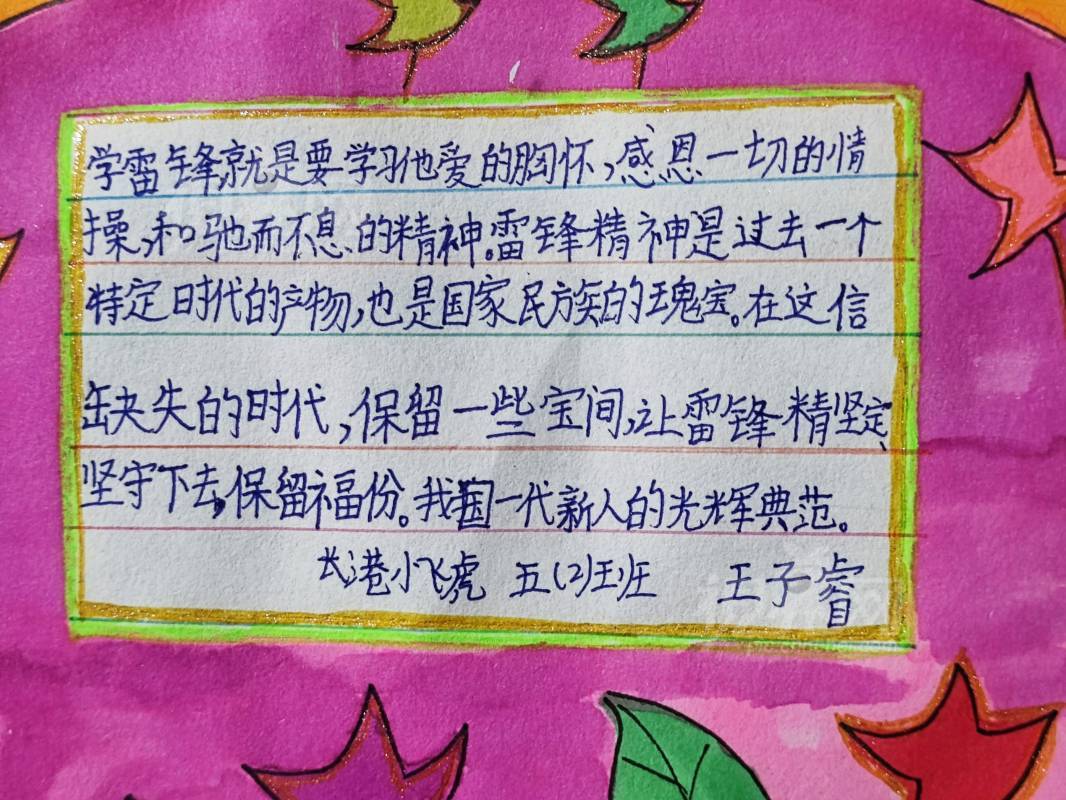 学雷锋,就是要学习他爱的胸怀,感恩一切的情
操,和驰而不息的精神。雷锋精神是过去一个
特定时代的产物,也是国家民族的瑰宝。在这信
缺失的时代,保留一些宝间,让雷锋精坚定、
坚守下去,保留福份。我国一代新人的光辉典范。
长港小飞虎 五(2)班 王子睿